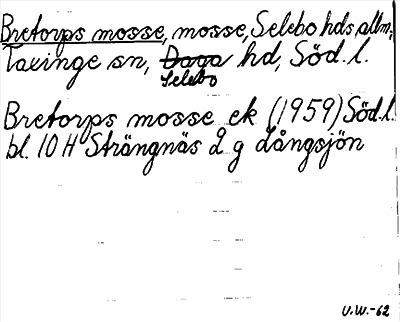 Bretorps mosse, mosse, Selebo hds allm.,
Taxinge sn, Daga hd, Söd. l.
Selebo
Bretorps mosse ek (1959) Söd. l.
bl. 10 H Strängnäs 2 g Långsjön
U.W.-62